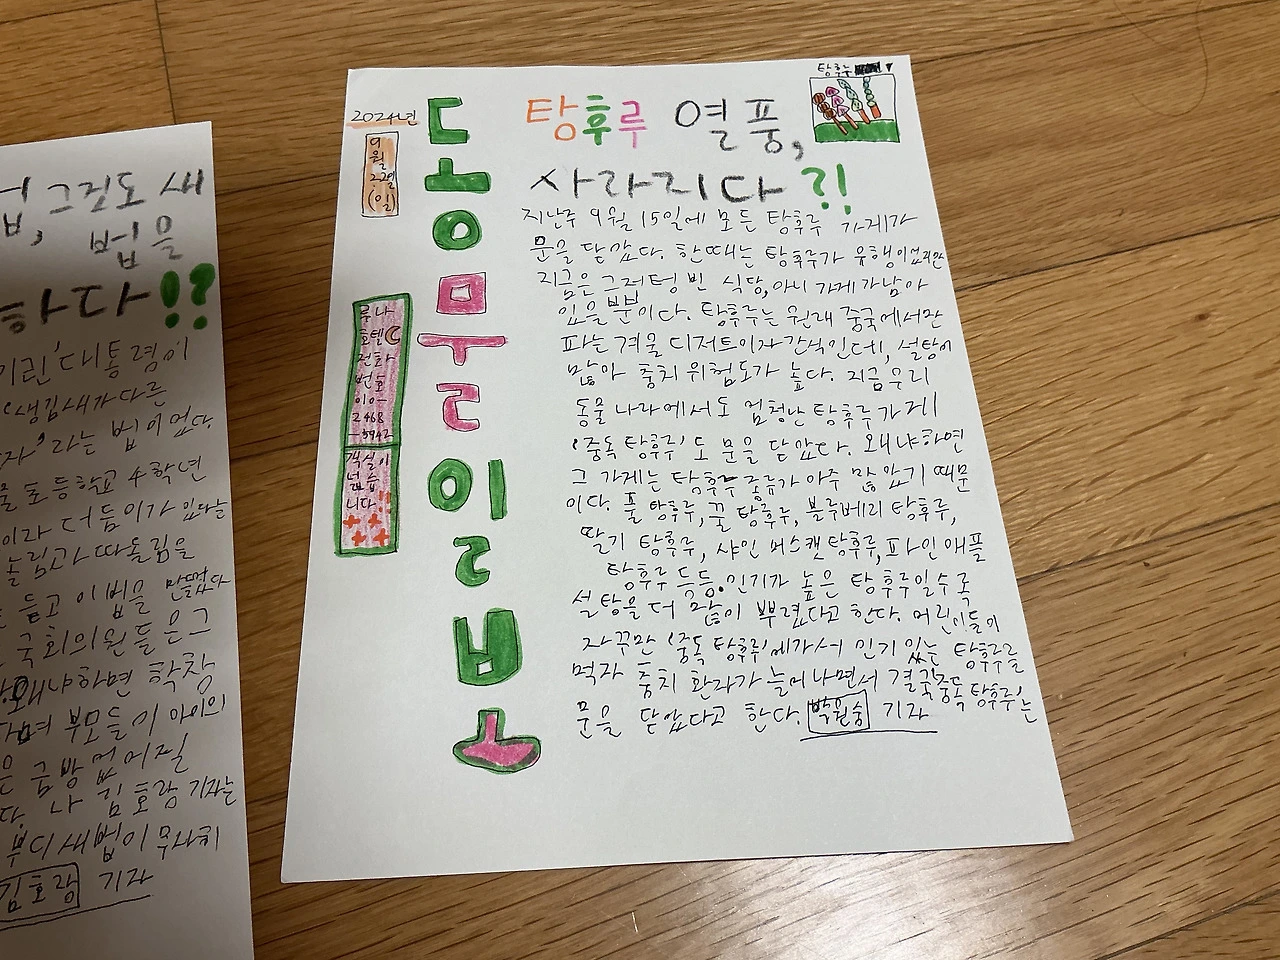 그것도 새
법을
하다!!?
기린'대통령이
'생김새가 다른
라는 법이었다.
초등학교 4학년
이라 더듬이가 있다는
놀림과 따돌림을
듣고 이 법을 만들었다
국회의원들은 그
왜냐하면 학창
부모들이 아이의
은 금방 없어질
다. 나 김호랑 기자는
부디 새 법이 무사히
김호랑 기자
2024년
9월
22일
(일)
동물일보
루나
호텔
전화
번호
010-
2468
-5942
객실이
넓습
니다!!
탕후루
탕후루 열풍,
사라지다?!
지난주 9월 15일에 모든 탕후루 가게가
문을 닫았다. 한때는 탕후루가 유행이었지만
지금은 그저 텅 빈 식당, 아니 가게가 남아
있을 뿐이다. 탕후루는 원래 중국에서만
파는 겨울 디저트이자 간식인데, 설탕이
많아 충치 위험도가 높다. 지금 우리
동물 나라에서도 엄청난 탕후루 가게
'중독 탕후루'도 문을 닫았다. 왜냐하면
그 가게는 탕후루 종류가 아주 많았기 때문
이다. 풀 탕후루, 꿀 탕후루, 블루베리 탕후루,
딸기 탕후루, 샤인 머스캣 탕후루, 파인애플
탕후루 등등. 인기가 높은 탕후루일수록
설탕을 더 많이 뿌렸다고 한다. 어린이들이
자꾸만 '중독 탕후루'에 가서 인기 있는 탕후루를
먹자 충치 환자가 늘어나면서 결국 '중독 탕후루'는
문을 닫았다고 한다. 박원숭 기자